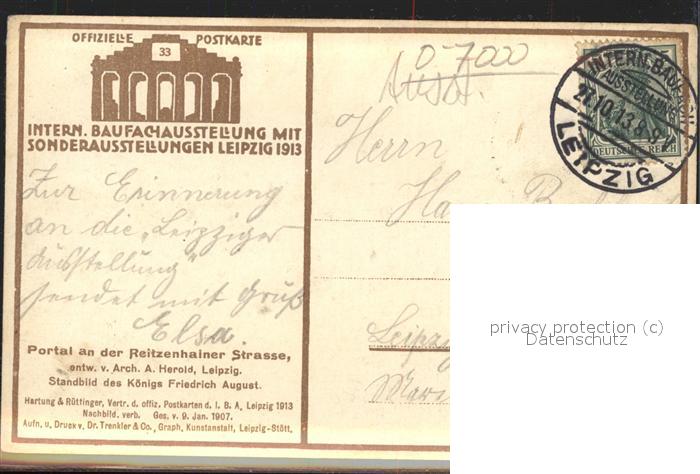 OFFIZIELLE POSTKARTE
33
INTERN. BAUFACHAUSSTELLUNG MIT
SONDERAUSSTELLUNGEN LEIPZIG 1913
Zur Erinnerung
an die „Leipziger
Ausstellung"
sendet mit Gruß
Elsa.
Portal an der Reitzenhainer Strasse,
entw. v. Arch. A. Herold, Leipzig.
Standbild des Königs Friedrich August.
Hartung & Rüttinger, Vertr. d. offiz. Postkarten d. I. B. A, Leipzig 1913
Nachbild. verb. Ges. v. 9. Jan. 1907.
Aufn. u. Druck v. Dr. Trenkler & Co., Graph. Kunstanstalt, Leipzig-Stött.
0-7000
Ausst.
INTERN. BAUFACH
AUSSTELLUNG
27.10.13.8-9
LEIPZIG
DEUTSCHES REICH
Herrn
Leipzig
privacy protection (c)
Datenschutz